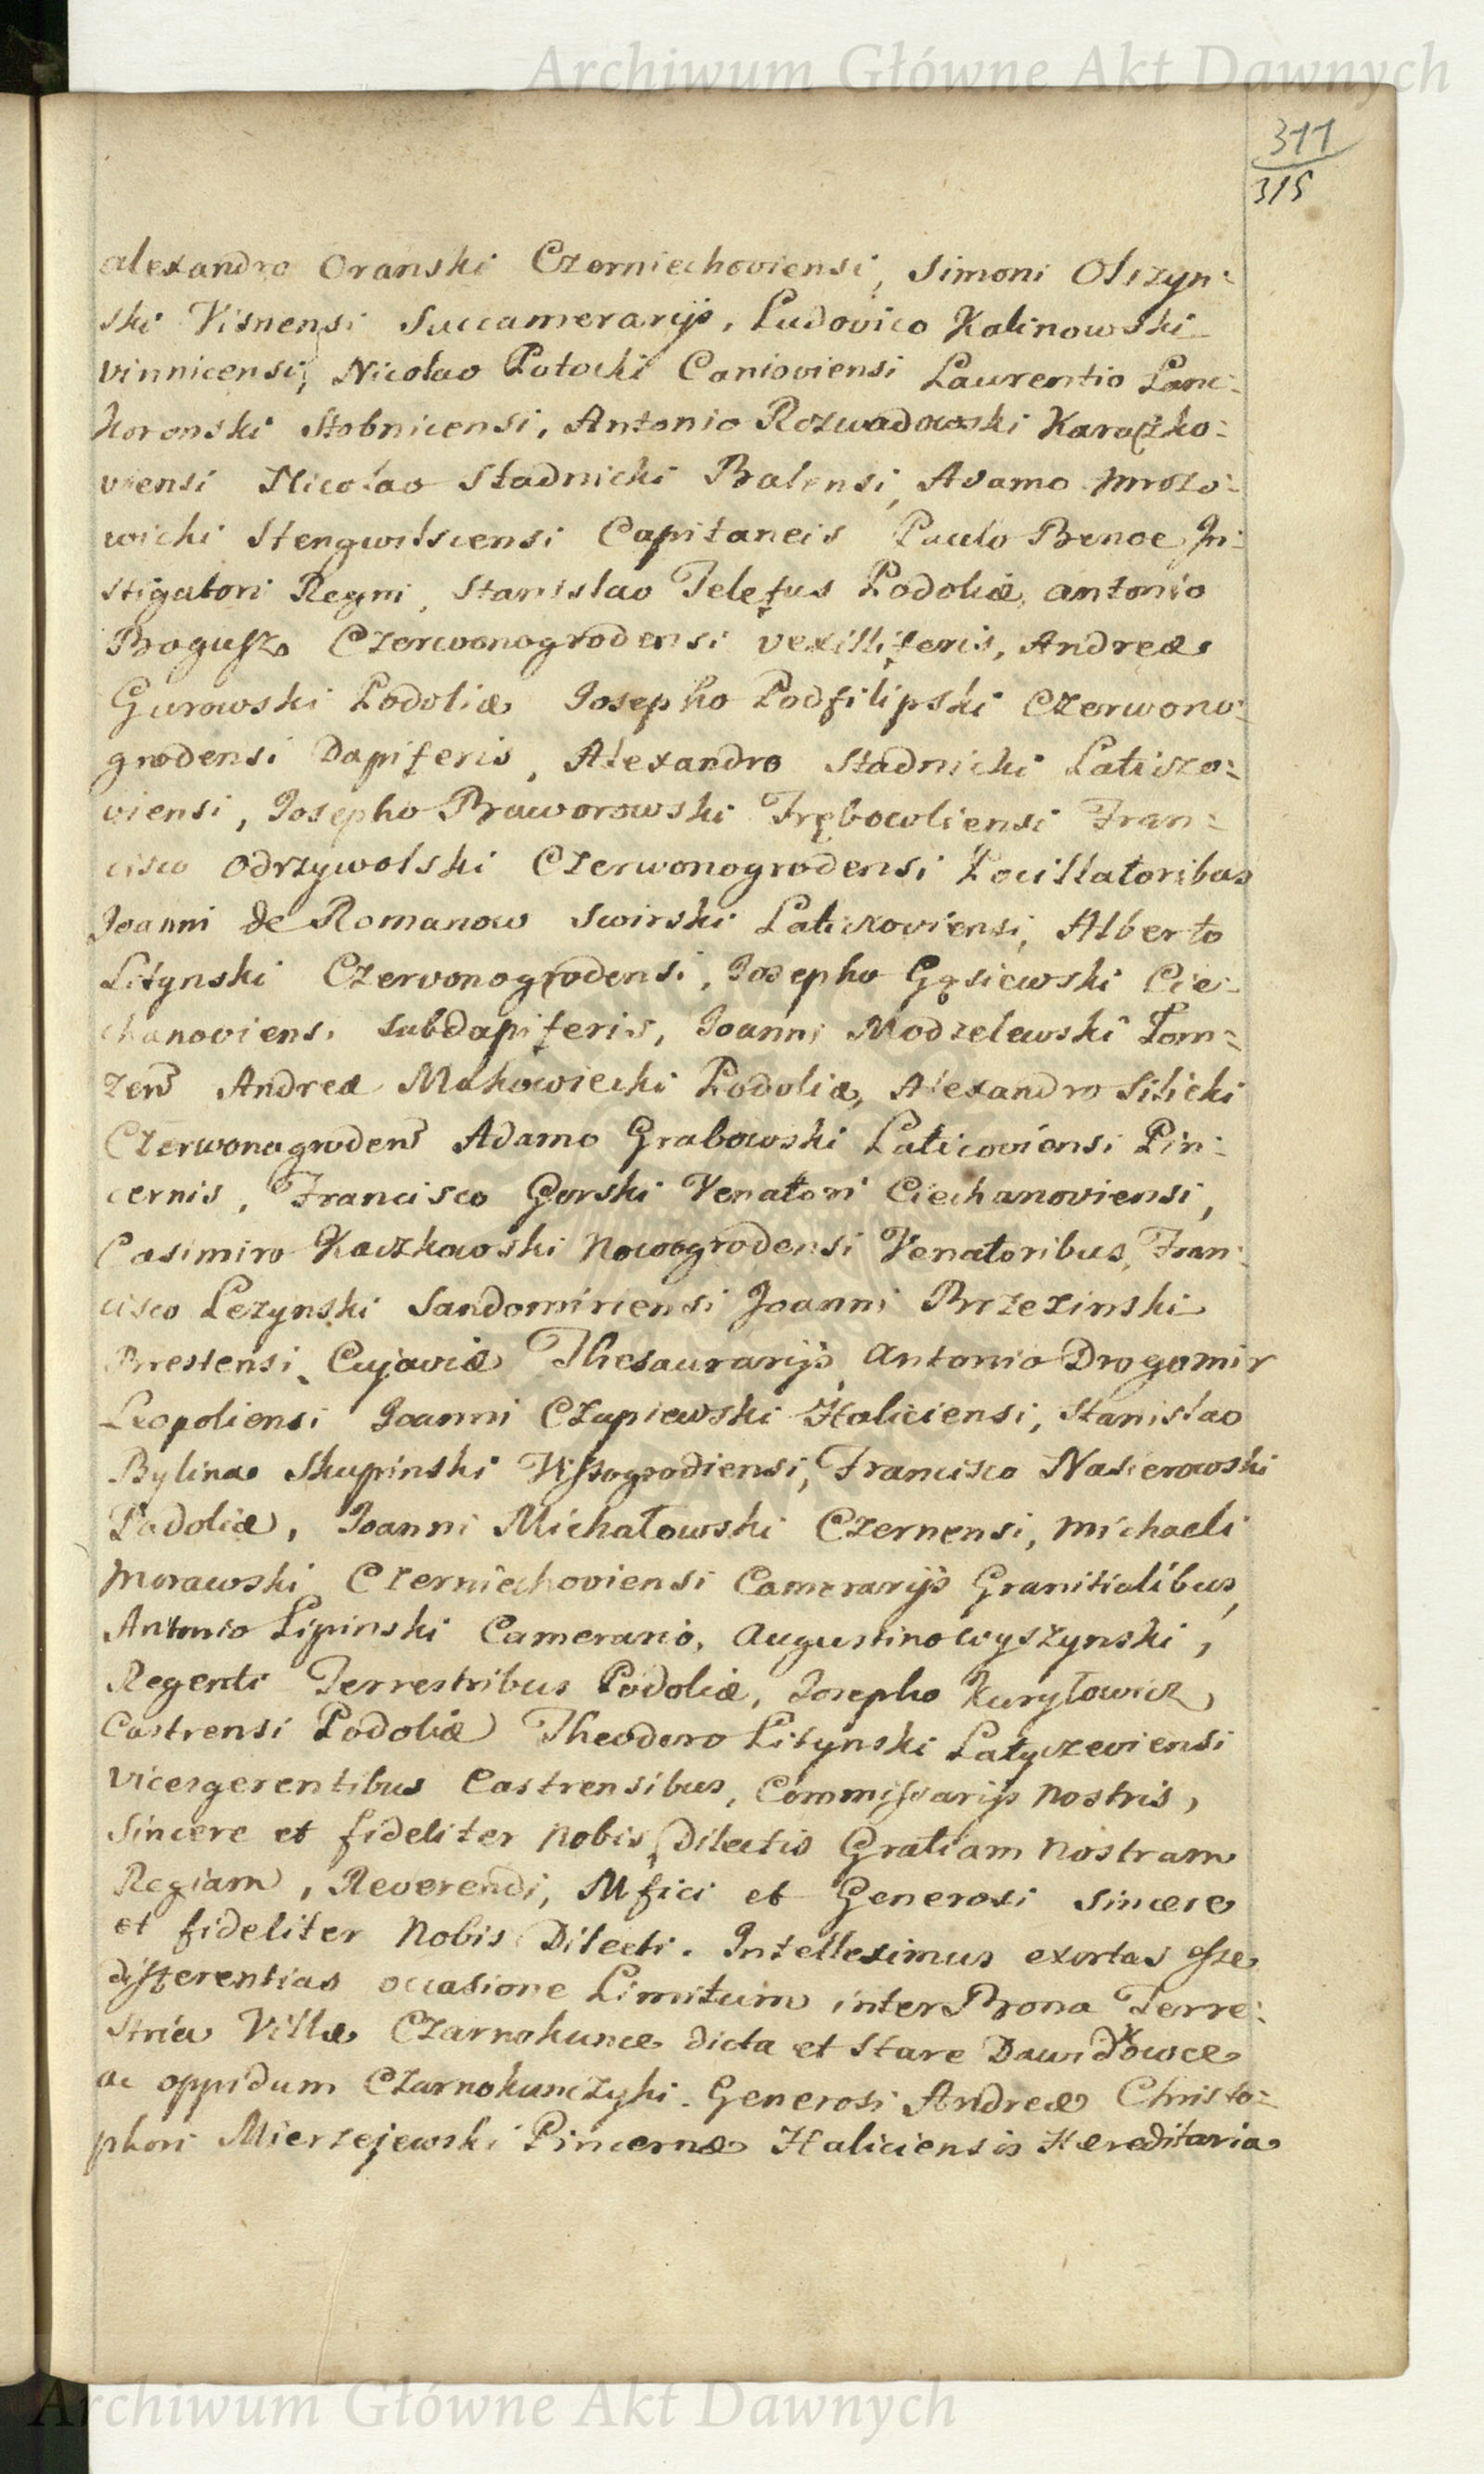 Archiwum Główne Akt Dawnych
311
315
Alexandro Oranski Czerniechoviensi, Simoni Olszyn:
ski Visnensi Succamerarijs, Ludovico Kalinowski
vinnicensi, Nicolao Potocki Canioviensi Laurentio Lanc:
koronski Stobnicensi, Antonio Rozwadowski Karaczko:
viensi Nicolao Stadnicki Balensi, Adamo Mrozo:
wicki Stengwilscensi Capitaneis Paulo Benoe In:
stigatori Regni, Stanislao Telefus Podoliæ, Antonio
Bogusz Czerwonogrodensi vexilliferis, Andreæ
Gurowski Podoliæ Josepho Podfilipski Czerwono:
grodensi Dapiferis, Alexandro Stadnicki Laticzo:
viensi, Josepho Baworowski Trębowliensi Fran:
cisco Odrzywolski Czerwonogrodensi Pocillatoribus
Joanni de Romanow Swirski Laticzoviensi, Alberto
Litynski Czervonogrodensi, Josepho Gąsiewski Cie:
chanoviensi subdapiferis, Joanni Modzelewski Łom:
zens Andreæ Makowiecki Podoliæ, Alexandro Silicki
Czerwonagrodens Adamo Grabowski Laticoviensi Pin:
cernis, Francisco Gorski Venatori Ciechanoviensi,
Casimiro Kaczkowski Nowogrodensi Venatoribus, Fran:
cisco Lezynski Sandomiriensi Joanni Brzezinski
Brestensi Cujaviæ Thesaurarijs, Antonio Drogomir
Leopoliensi Joanni Czapiewski Haliciensi, Stanislao
Bylina Skupinski Vissogrodiensi, Francisco Nasierowski
Podoliæ, Joanni Michałowski Czernensi, Michaeli
Morawski Czerniechoviensi Camerarijs Granitialibus,
Antonio Lipinski Camerario, Augustino Wyszynski,
Regenti Terrestribus Podoliæ, Josepho Kuryłowicz
Castrensi Podoliæ Theodoro Litynski Latyczeviensi
Vicesgerentibus Castrensibus, Commissarijs nostris,
Sincere et fideliter Nobis Dilectis Gratiam nostram
Regiam, Reverendi, Mfici et Generosi Sincere
et fideliter Nobis Dilecti. Intelleximus exortas esse
differentias occasione Limitum inter Bona Terre:
stria Villæ Czarnokunce dicta et Stare Dawidkowce
ac oppidum Czarnokunczyki Generosi Andreæ Christo:
phori Mierzejewski Pincernæ Haliciensis Hæreditaria
Archiwum Główne Akt Dawnych